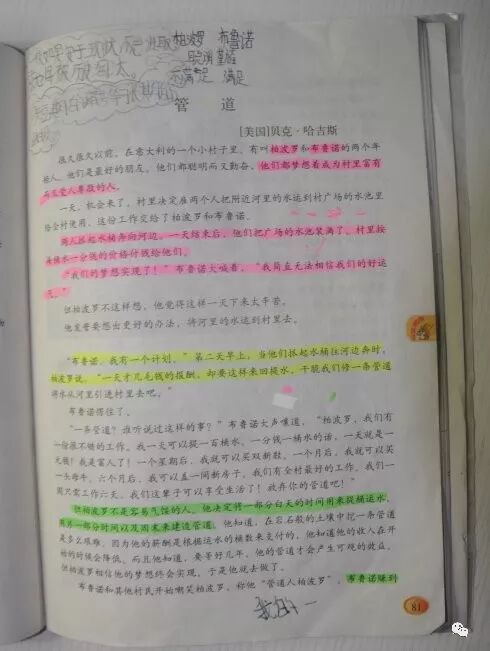 柏波罗 布鲁诺
聪明 勤奋
不满足 满足
管 道
[美国]贝克·哈吉斯
很久很久以前，在意大利的一个小村子里，有叫柏波罗和布鲁诺的两个年
轻人。他们是最好的朋友，他们都聪明而又勤奋。他们都梦想着成为村里富有
而又受人尊敬的人。
一天，机会来了，村里决定雇两个人把附近河里的水运到村广场的水池里
给全村使用，这份工作交给了柏波罗和布鲁诺。
两人抓起水桶奔向河边。一天结束后，他们把广场的水池装满了。村里按
每桶水一分钱的价格付钱给他们。
“我们的梦想实现了！”布鲁诺大喊着，“我简直无法相信我们的好运
气。”
但柏波罗不这样想，他觉得这样一天下来太辛苦。
他发誓要想出更好的办法，将河里的水运到村里去。
“布鲁诺，我有一个计划。”第二天早上，当他们抓起水桶往河边奔时，
柏波罗说，“一天才几毛钱的报酬，却要这样来回提水，干脆我们修一条管道
将水从河里引进村里去吧。”
布鲁诺愣住了。
“一条管道？谁听说过这样的事？”布鲁诺大声嚷道，“柏波罗，我们有
一份很不错的工作。我一天可以提一百桶水。一分钱一桶水的话，一天就是一
元钱！我是富人了！一个星期后，我就可以买双新鞋。一个月后，我就可以买
一头母牛。六个月后，我可以盖一间新房子。我们有全村最好的工作。我们一
周只需工作六天，我们这辈子可以享受生活了！放弃你的管道吧！”
但柏波罗不是容易气馁的人。他决定将一部分白天的时间用来提桶运水，
用另一部分时间以及周末来建造管道。他知道，在岩石般的土壤中挖一条管道
是多么艰难。因为他的薪酬是根据运水的桶数来支付的，他知道他的收入在开
始的时候会降低。而且他知道，要等好几年，他的管道才会产生可观的效益。
但柏波罗相信他的梦想终会实现，于是他就去做了。
布鲁诺和其他村民开始嘲笑柏波罗，称他“管道人柏波罗”。布鲁诺赚到
81